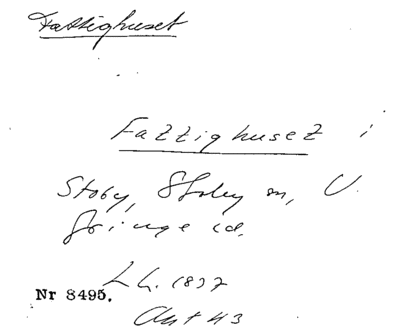 Fattighuset
Fattighuset i
Stoby, Stoby sn, V.
Göinge hd.
L.L. 1837
Nr 8495.
Akt 43